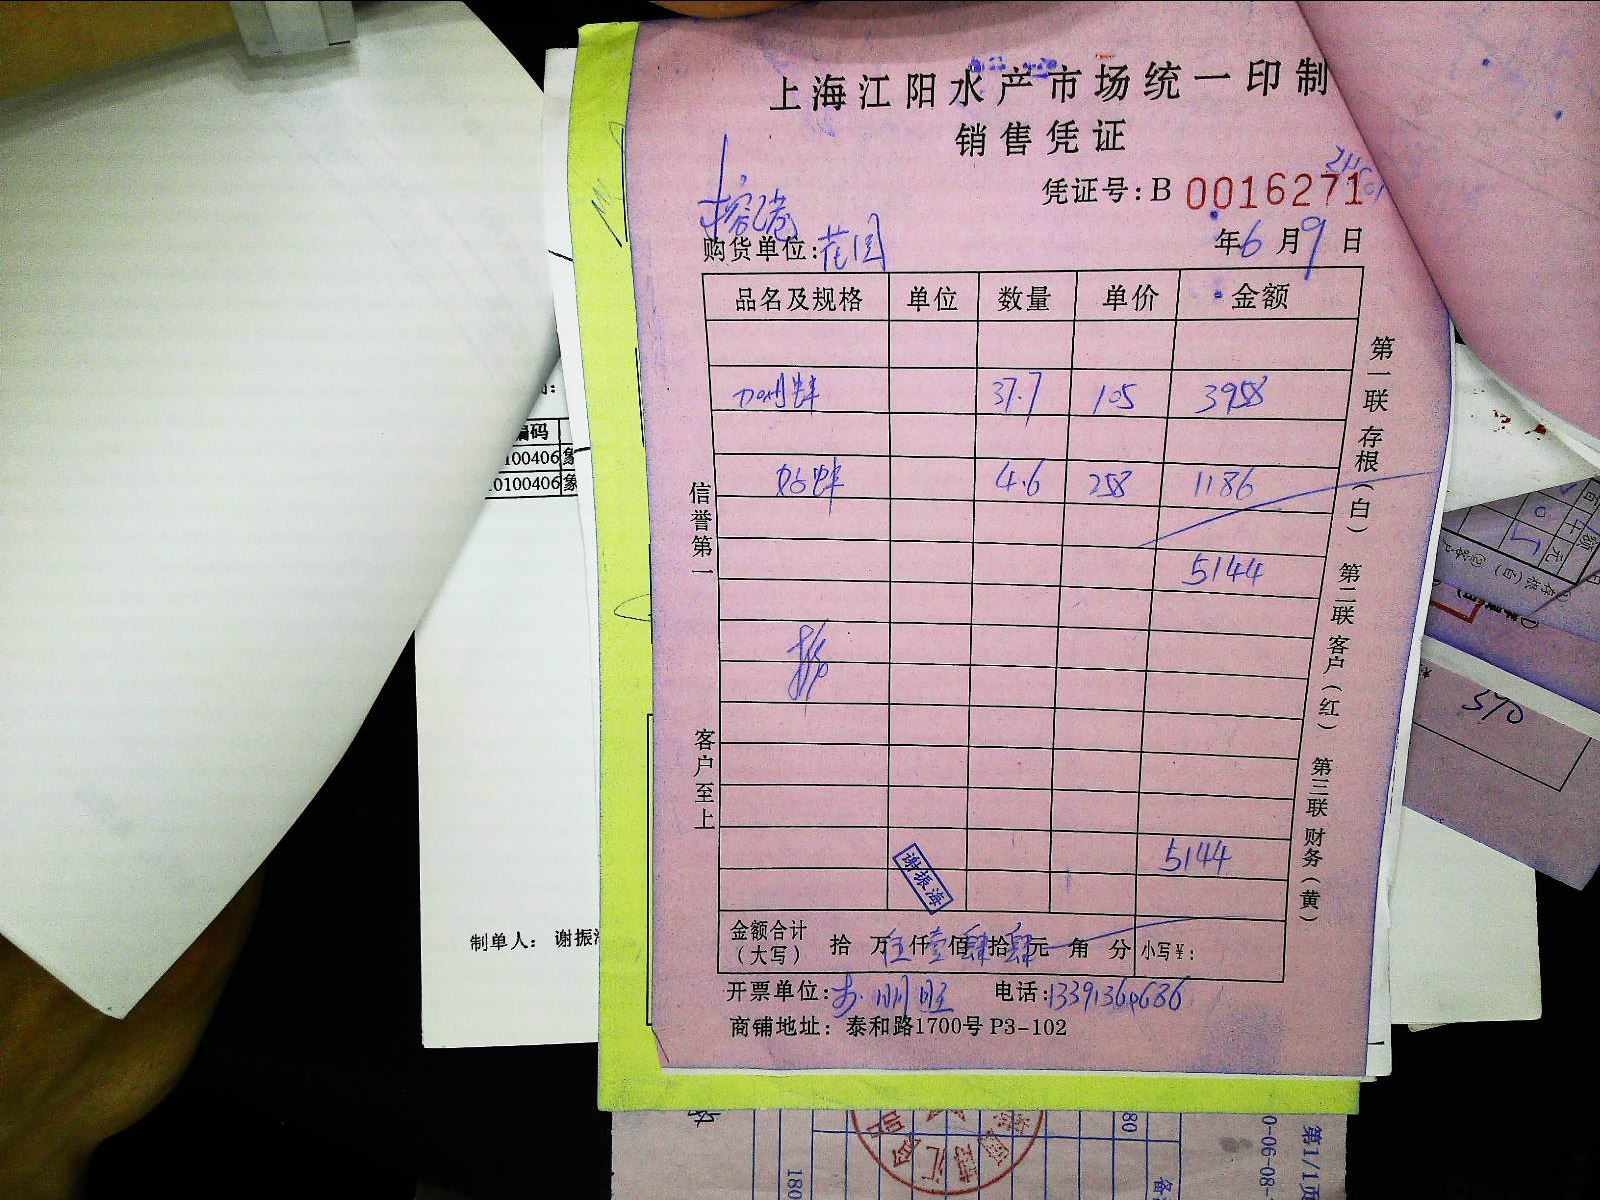 上海江阳水产市场统一印制
销售凭证
凭证号:B 0016271
购货单位:花园
年6月9日
品名及规格 单位 数量 单价 金额
37.7 105 3958
4.6 258 1186
5144
5144
谢振海
金额合计(大写) 拾万伍仟壹佰肆拾肆元角分 小写¥:
开票单位: 电话:13391360686
商铺地址：泰和路1700号 P3-102
信誉第一
客户至上
第一联 存根(白) 第二联 客户(红) 第三联 财务(黄)
编码
0100406 象
0100406 象
制单人： 谢振海
510
第1/1页
0-06-08-
180
80